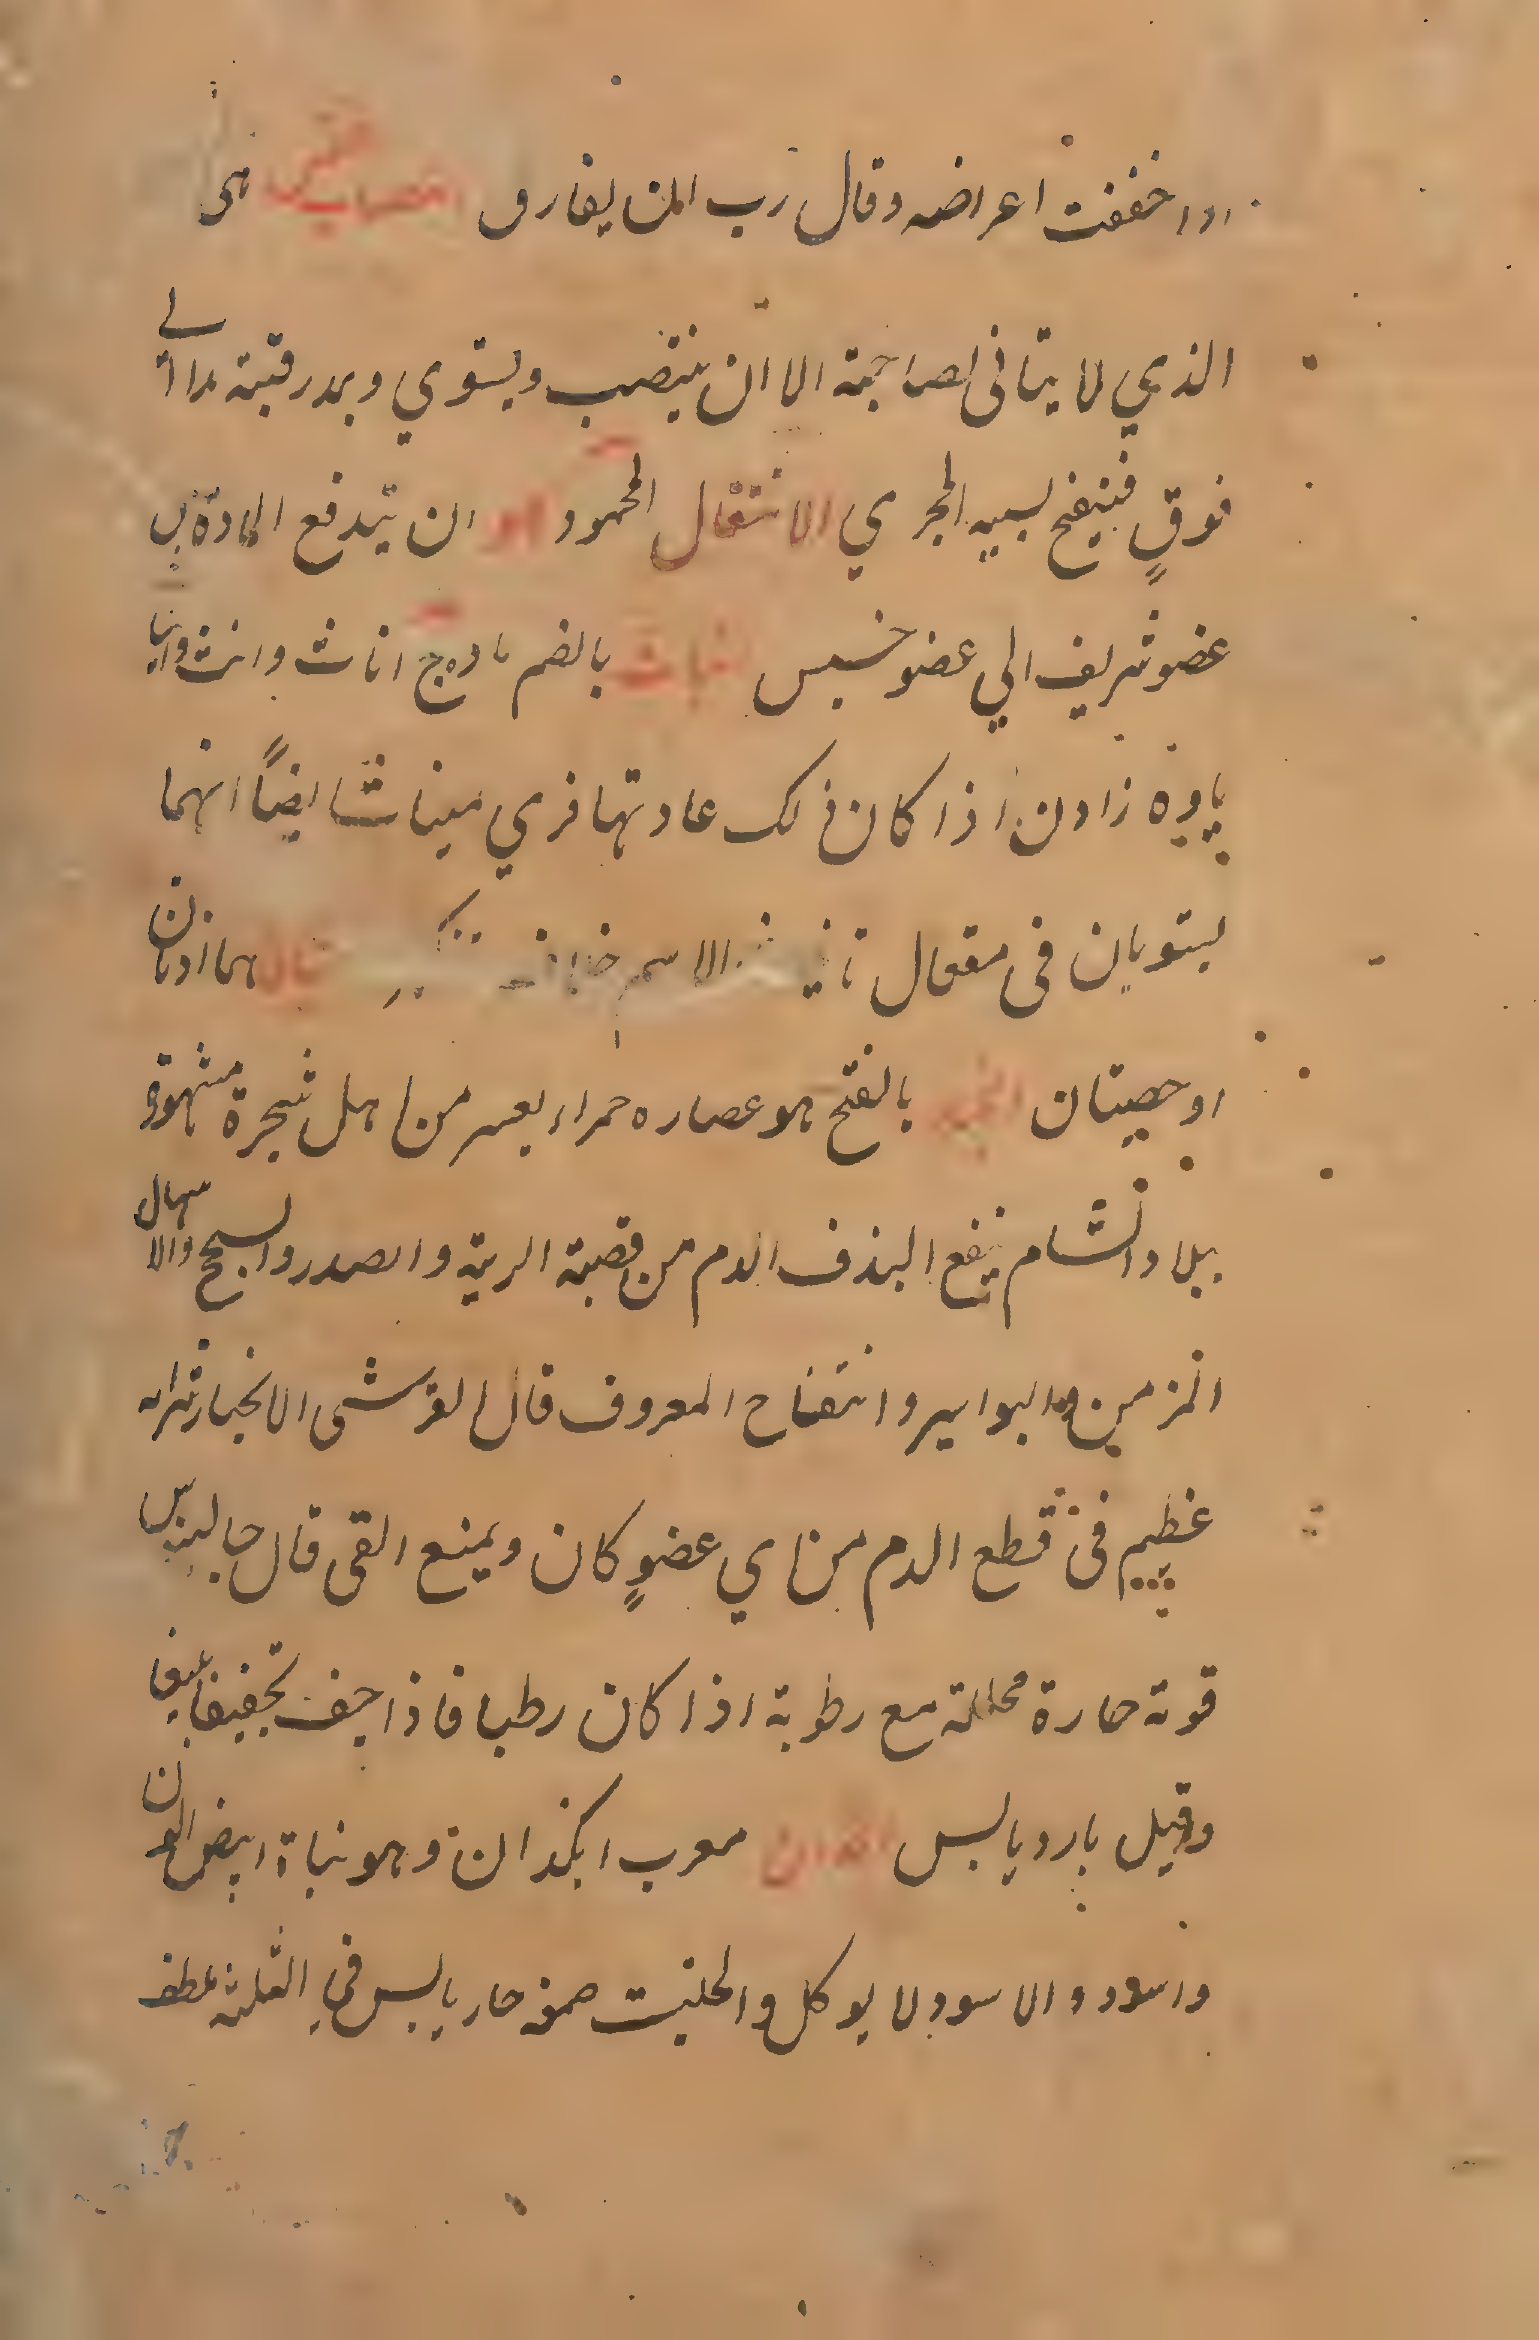 اذا خففت اعراضه وقال رب الن يفارق هى
الذي لا يتانى لصاحبة الا ان ينتصب ويستوي ويمد رقبته مدا الى
فوقٍ فينفتح بسببه المجري الانتقال المحمود هو ان يندفع المادة من
عضو شريف الي عضو خسيس اناث بالضم ماده ج اناث وانث وانيا
ياوده زادن اذا كان ذلك عادتها فري ميناث ايضاً انهما
يستويان فى مفعال تانيث الاسم خلاف تذكير هما اذنان
او خصيتان بالفتح هو عصاره حمراء يعسر من اهل شجرة مشهورة
ببلاد الشام ينفع البذف الدم من قصبة الرية والصدر والسحج والاسهال
المزمن والبواسير وانتفاح المعروف قال القرشى الانجبار شراب
عظيم فى قطع الدم من اي عضوٍ كان ويمنع القى قال جالينوس
قوته حارة محللة مع رطوبة اذا كان رطبا فاذا جف تجفيفا
وقيل بارد يابس معرب انكذان وهو نباة ابيض اللون
واسود والاسود لا يوكل والحلتيت صمغه حار يابس في الثلثة ملطف